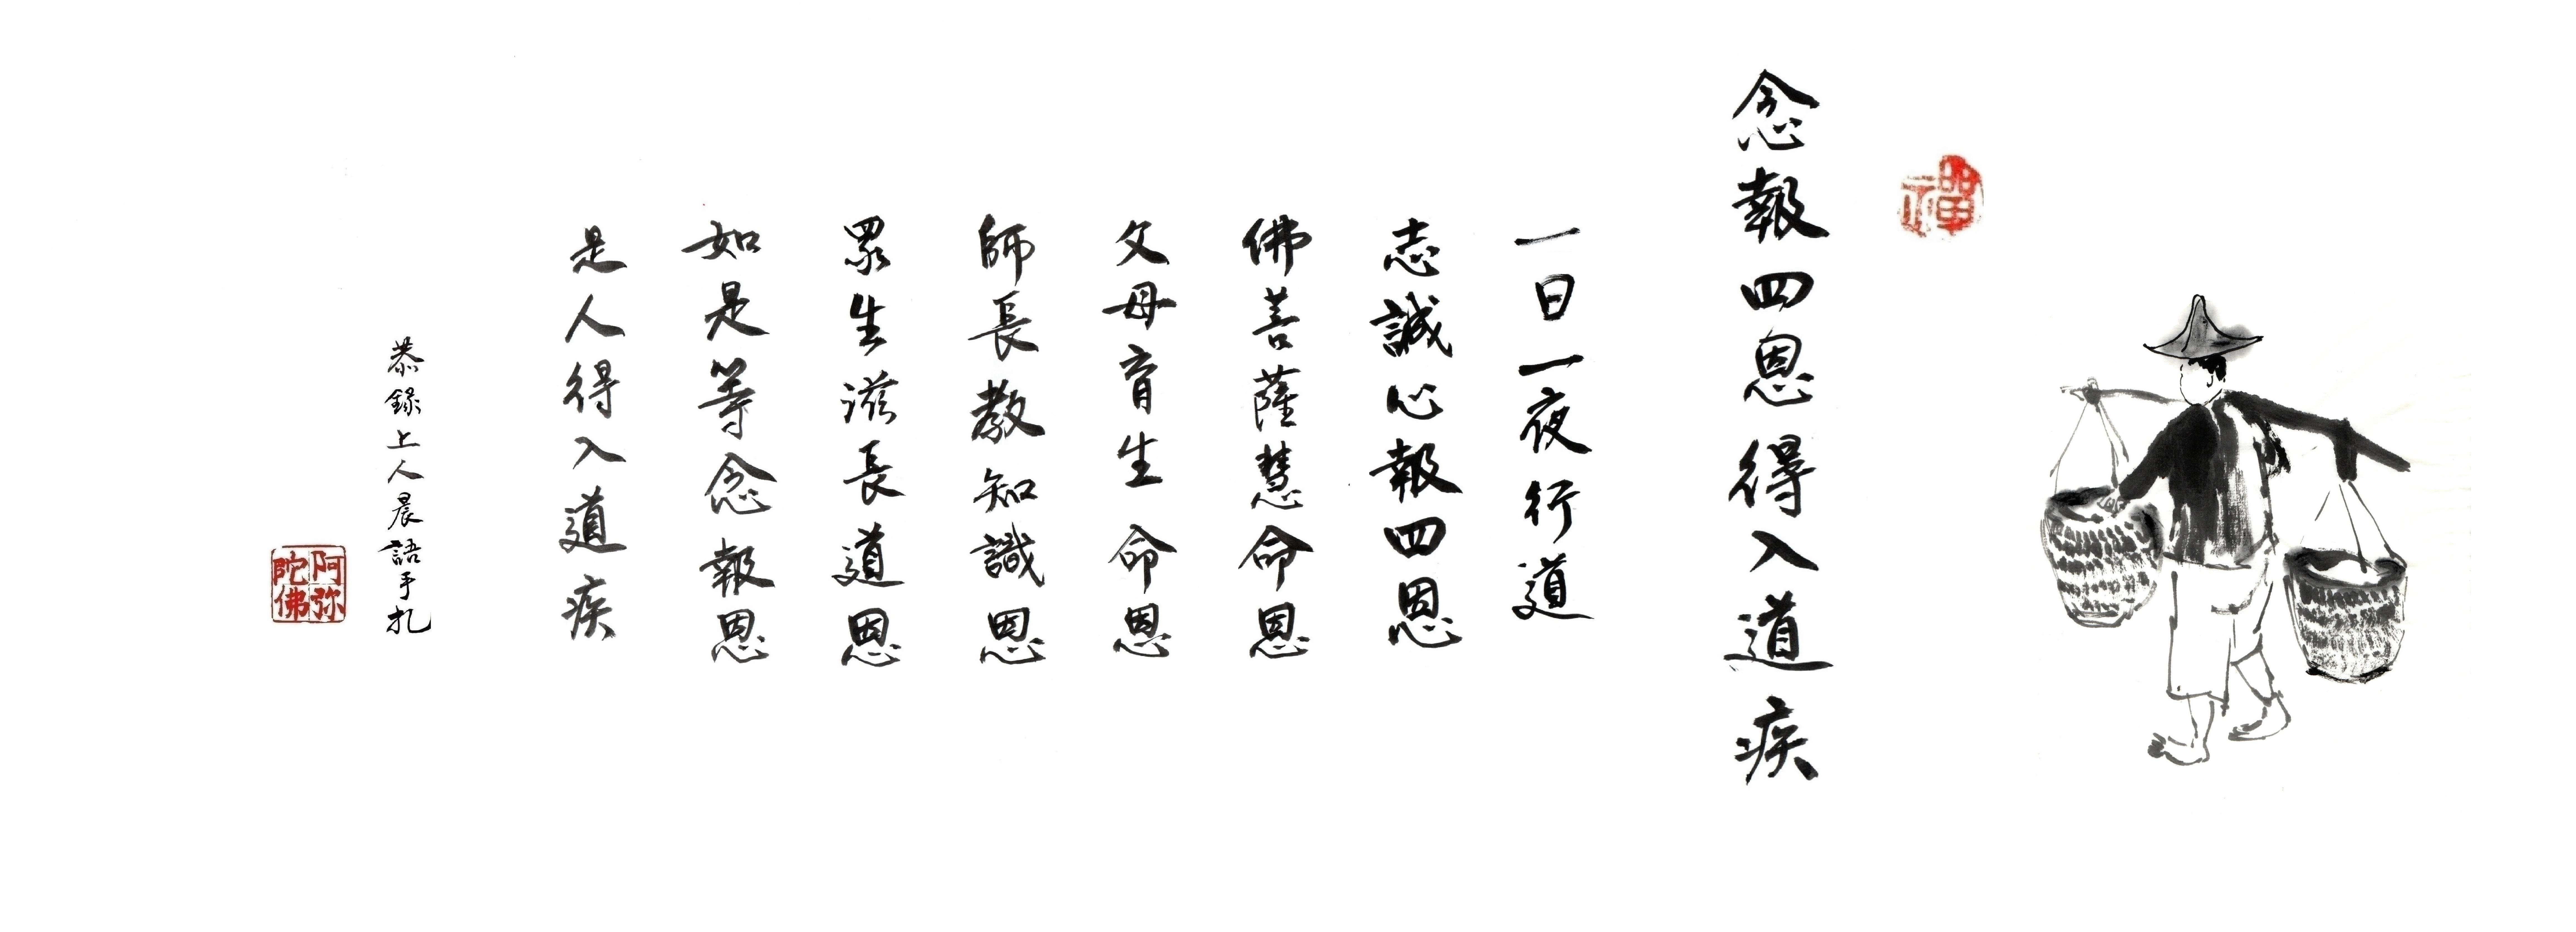 禪
念報四恩得入道疾
一日一夜行道
志誠心報四恩
佛菩薩慧命恩
父母育生命恩
師長教知識恩
眾生滋長道恩
如是等念報恩
是人得入道疾
恭錄上人晨語手扎
阿弥
陀佛